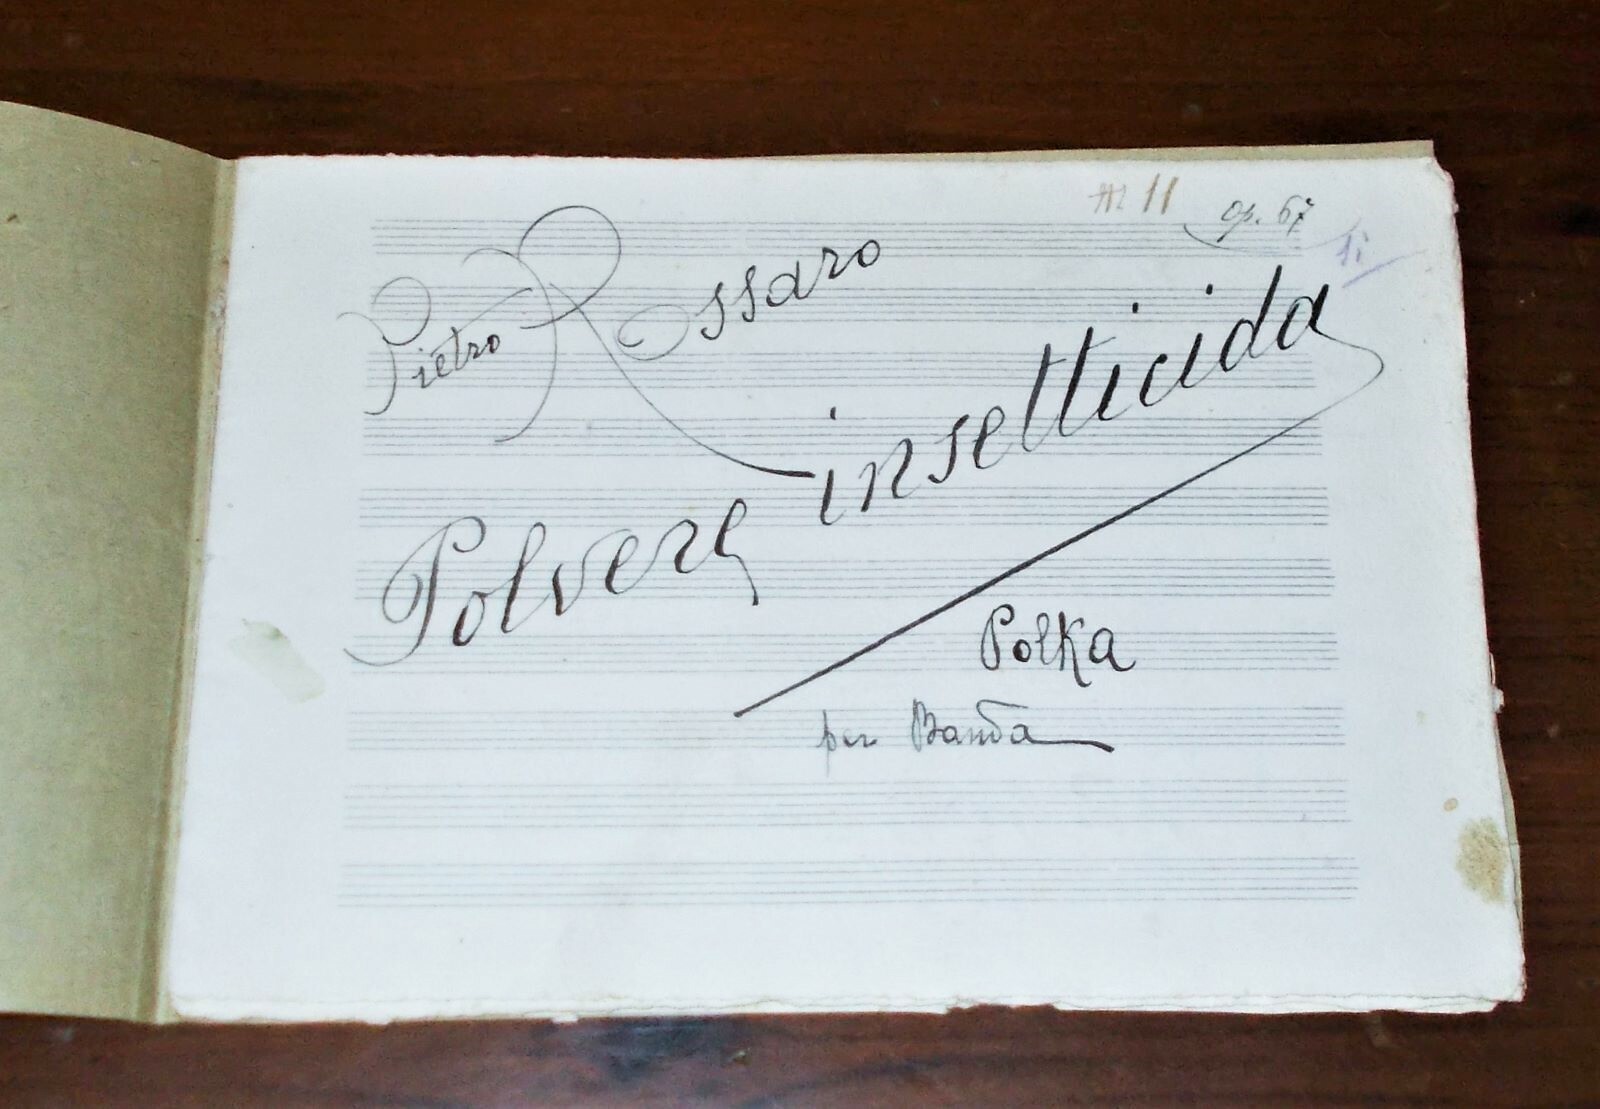 11
op. 67
Pietro Rossaro
Polvere insetticida
Polka
per Banda